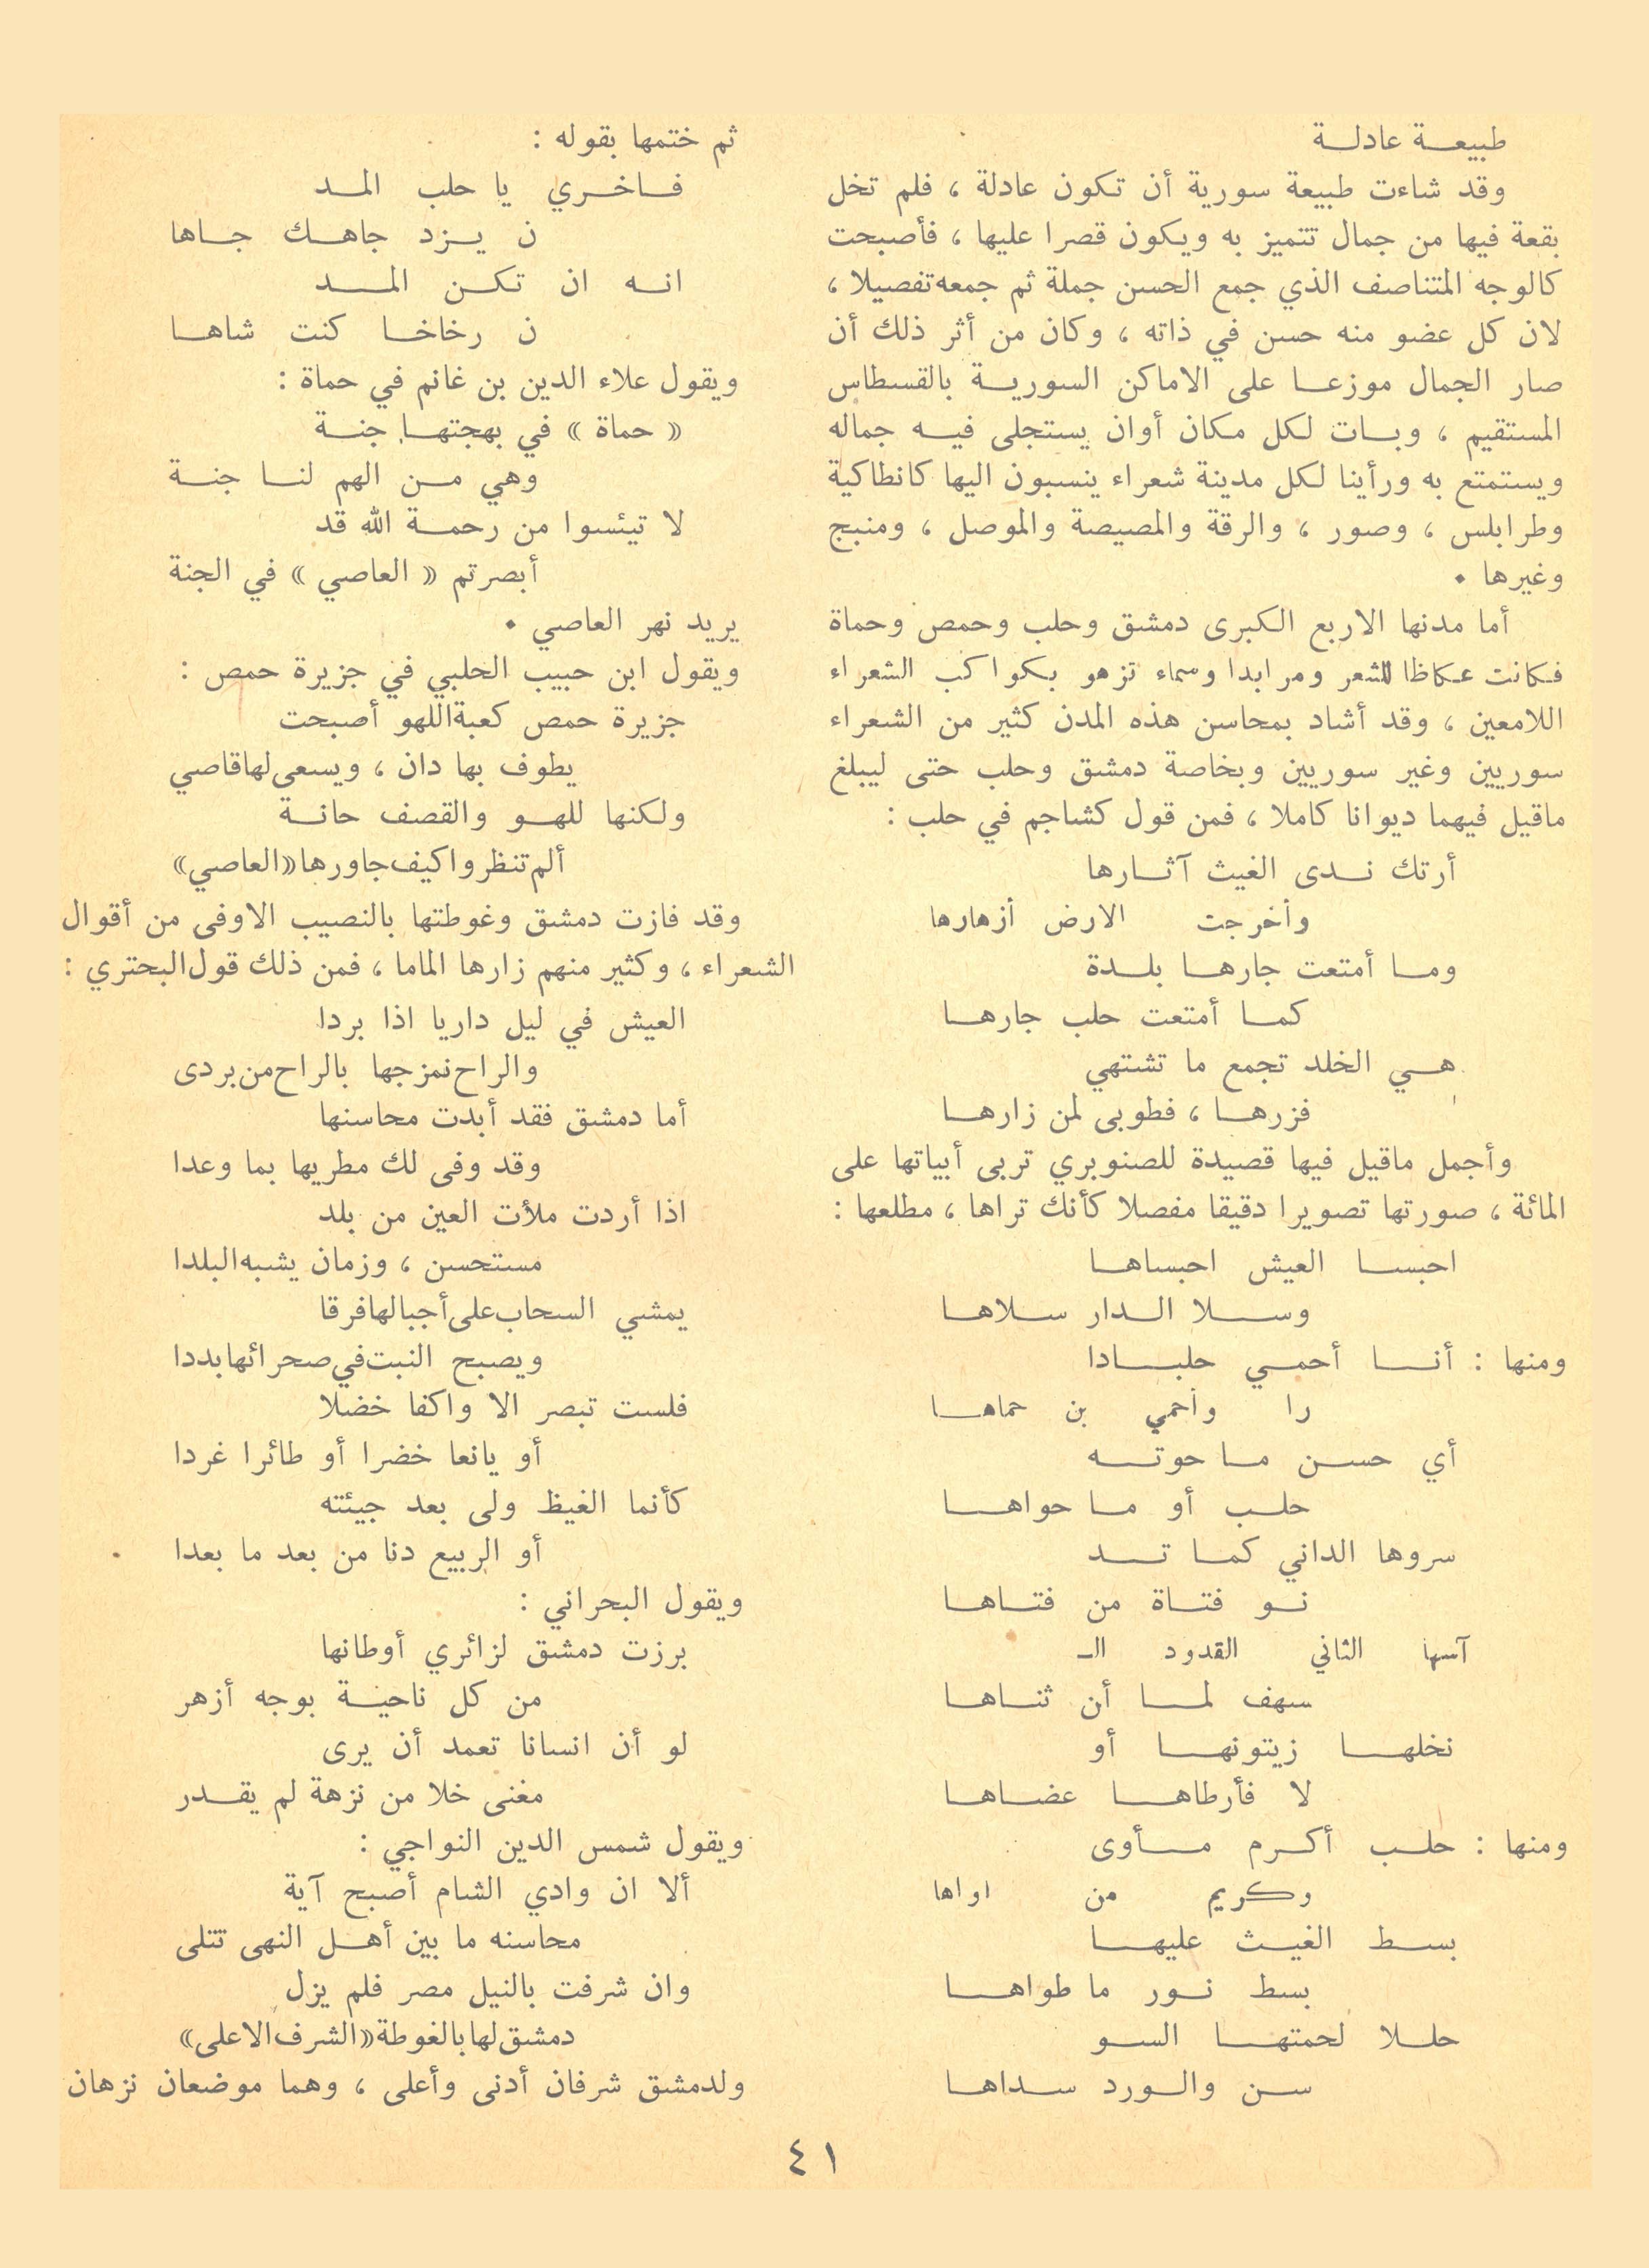 طبيعة عادلة
وقد شاءت طبيعة سورية أن تكون عادلة ، فلم تخل
بقعة فيها من جمال تتميز به ويكون قصرا عليها ، فأصبحت
كالوجه المتناصف الذي جمع الحسن جملة ثم جمعه تفصيلا ،
لان كل عضو منه حسن في ذاته ، وكان من أثر ذلك أن
صار الجمال موزعا على الاماكن السورية بالقسطاس
المستقيم ، وبات لكل مكان أوان يستجلى فيه جماله
ويستمتع به ورأينا لكل مدينة شعراء ينسبون اليها كانطاكية
وطرابلس ، وصور ، والرقة والمصيصة والموصل ، ومنبج
وغيرها .
أما مدنها الاربع الكبرى دمشق وحلب وحمص وحماة
فكانت عكاظا للشعر ومرابدا وسماء تزهو بكواكب الشعراء
اللامعين ، وقد أشاد بمحاسن هذه المدن كثير من الشعراء
سوريين وغير سوريين وبخاصة دمشق وحلب حتى ليبلغ
ماقيل فيهما ديوانا كاملا ، فمن قول كشاجم في حلب :
أرتك ندى الغيث آثارها
وأخرجت الارض أزهارها
وما أمتعت جارها بلدة
كما أمتعت حلب جارها
هي الخلد تجمع ما تشتهي
فزرها ، فطوبى لمن زارها
وأجمل ماقيل فيها قصيدة للصنوبري تربى أبياتها على
المائة ، صورتها تصويرا دقيقا مفصلا كأنك تراها ، مطلعها :
احبسا العيش احبساها
وسلا الدار سلاها
ومنها : أنا أحمي حلبادا
را وأحمي بن حماها
أي حسن ما حوته
حلب أو ما حواها
سروها الداني كما تد
نو فتاة من فتاها
آسها الثاني القدود الـ
سهف لما أن ثناها
نخلها زيتونها أو
لا فأرطاها عضاها
ومنها : حلب أكرم مأوى
وكريم من اواها
بسط الغيث عليها
بسط نور ما طواها
حللا لحمتها السو
سن والورد سداها
ثم ختمها بقوله :
فاخري يا حلب المد
ن يزد جاهك جاها
انه ان تكن المد
ن رخاخا كنت شاها
ويقول علاء الدين بن غانم في حماة :
« حماة » في بهجتها جنة
وهي من الهم لنا جنة
لا تيئسوا من رحمة الله قد
أبصرتم « العاصي » في الجنة
يريد نهر العاصي .
ويقول ابن حبيب الحلبي في جزيرة حمص :
جزيرة حمص كعبة اللهو أصبحت
يطوف بها دان ، ويسعى لها قاصي
ولكنها للهو والقصف حانة
ألم تنظروا كيف جاورها «العاصي»
وقد فازت دمشق وغوطتها بالنصيب الاوفى من أقوال
الشعراء ، وكثير منهم زارها الماما ، فمن ذلك قول البحتري :
العيش في ليل داريا اذا بردا
والراح نمزجها بالراح من بردى
أما دمشق فقد أبدت محاسنها
وقد وفى لك مطريها بما وعدا
اذا أردت ملأت العين من بلد
مستحسن ، وزمان يشبه البلدا
يمشي السحاب على أجبالها فرقا
ويصبح النبت في صحرائها بددا
فلست تبصر الا واكفا خضلا
أو يانعا خضرا أو طائرا غردا
كأنما الغيظ ولى بعد جيئته
أو الربيع دنا من بعد ما بعدا
ويقول البحراني :
برزت دمشق لزائري أوطانها
من كل ناحية بوجه أزهر
لو أن انسانا تعمد أن يرى
مغنى خلا من نزهة لم يقدر
ويقول شمس الدين النواجي :
ألا ان وادي الشام أصبح آية
محاسنه ما بين أهل النهى تتلى
وان شرفت بالنيل مصر فلم يزل
دمشق لها بالغوطة «الشرف الاعلى»
ولدمشق شرفان أدنى وأعلى ، وهما موضعان نزهان
٤١